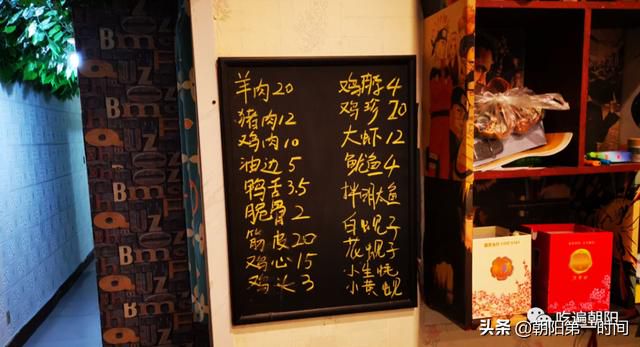 羊肉20
猪肉12
鸡肉10
油边5
鸭舌3.5
脆骨2
筋皮20
鸡心15
鸡头3
鸡脖4
鸡珍20
大虾12
鱿鱼4
拌明太鱼
白蚬子
花蚬子
小生蚝
小黄蚬
吃遍朝阳
头条 @朝阳第一时间